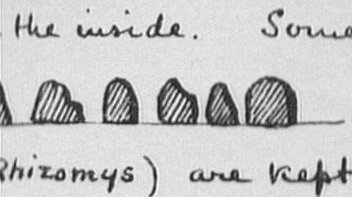 the inside. Some
Rhizomys) are kept